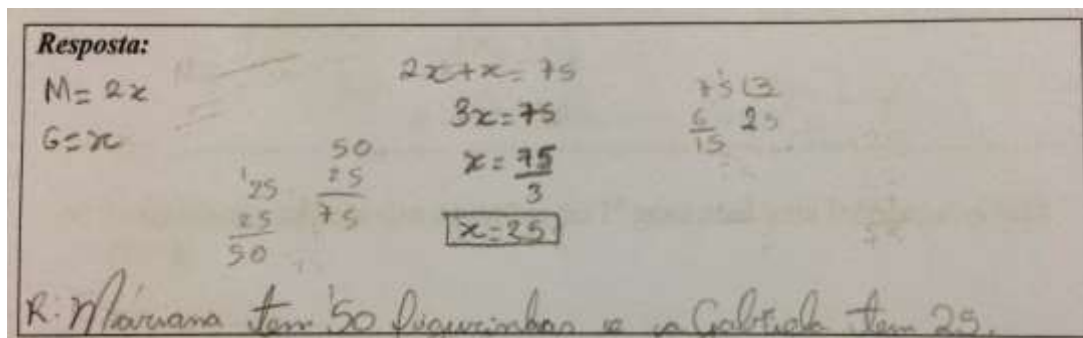 Resposta:
M = 2x
G = x
2x + x = 75
3x = 75
x = 75
3
x = 25
1
25
25
50
50
25
75
75 3
6 25
15
R: Mariana tem 50 figurinhas e a Gabriela tem 25.